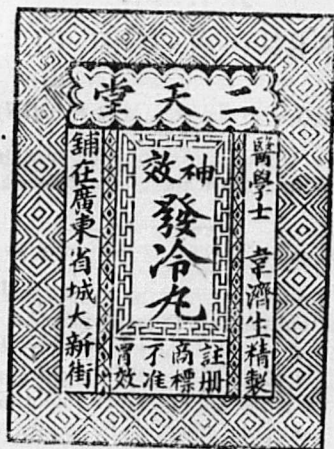 二天堂
醫學士 韋濟生精製
神效
發冷丸
註冊商標不准冐效
鋪在廣東省城大新街